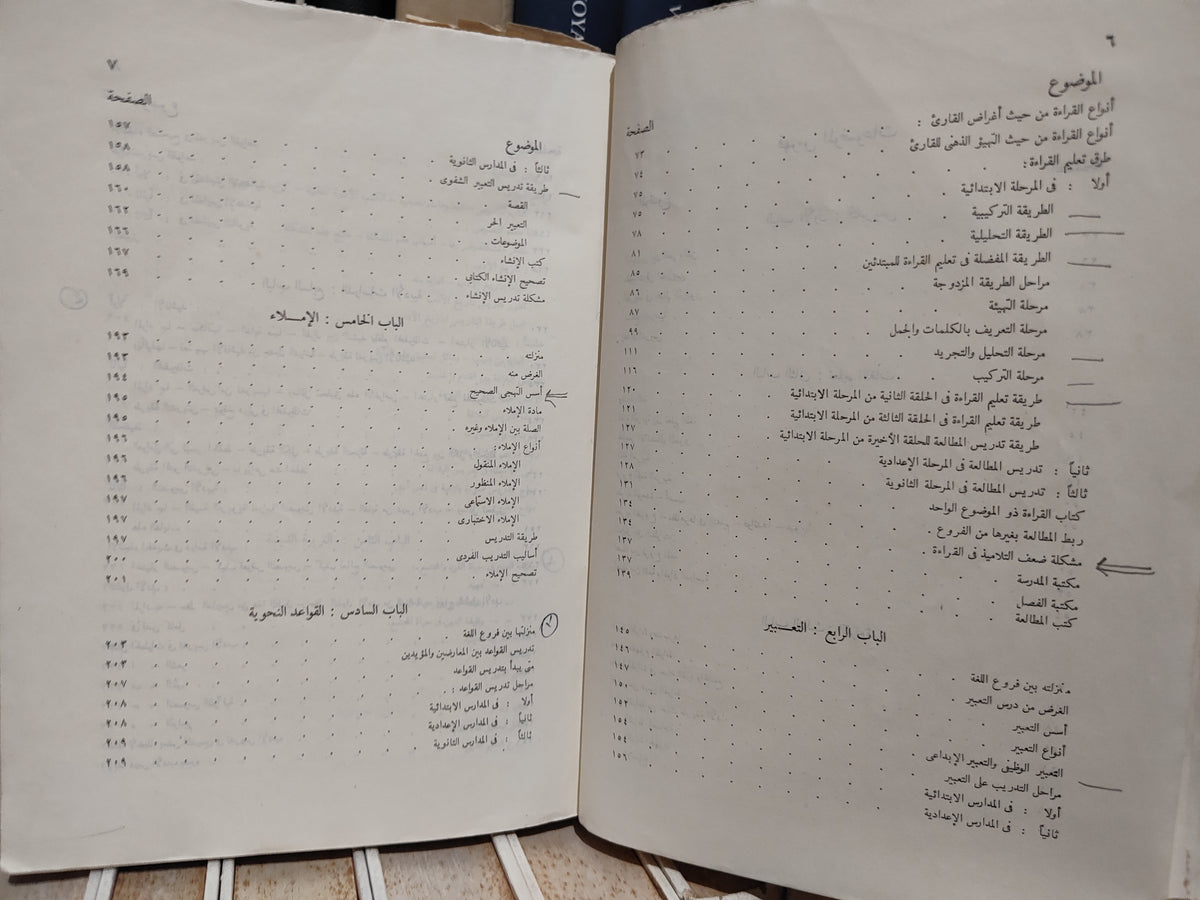 ٦
الموضوع الصفحة
أنواع القراءة من حيث أغراض القارئ : ٧٣
أنواع القراءة من حيث التهيؤ الذهنى للقارئ ٧٤
طرق تعليم القراءة : ٧٥
أولا : فى المرحلة الابتدائية ٧٥
الطريقة التركيبية ٧٨
الطريقة التحليلية ٨١
الطريقة المفضلة فى تعليم القراءة للمبتدئين ٨٥
مراحل الطريقة المزدوجة ٨٦
مرحلة التهيئة ٨٧
مرحلة التعريف بالكلمات والجمل ٩٩
مرحلة التحليل والتجريد ١١١
مرحلة التركيب ١١٦
طريقة تعليم القراءة فى الحلقة الثانية من المرحلة الابتدائية ١٢٠
طريقة تعليم القراءة فى الحلقة الثالثة من المرحلة الابتدائية ١٢١
طريقة تدريس المطالعة للحلقة الأخيرة من المرحلة الابتدائية ١٢٧
ثانياً : تدريس المطالعة فى المرحلة الإعدادية ١٢٧
ثالثاً : تدريس المطالعة فى المرحلة الثانوية ١٢٨
كتاب القراءة ذو الموضوع الواحد ١٣١
ربط المطالعة بغيرها من الفروع ١٣٤
مشكلة ضعف التلاميذ فى القراءة ١٣٤
مكتبة المدرسة ١٣٧
مكتبة الفصل ١٣٧
كتب المطالعة ١٣٩
الباب الرابع : التعـــبير
منزلته بين فروع اللغة ١٤٥
الغرض من درس التعبير ١٤٦
أسس التعبير ١٤٧
أنواع التعبير ١٥٠
التعبير الوظيفى والتعبير الإبداعى ١٥٢
مراحل التدريب على التعبير ١٥٤
أولا : فى المدارس الابتدائية ١٥٤
ثانياً : فى المدارس الإعدادية ١٥٦
٧
الموضوع الصفحة
ثالثاً : فى المدارس الثانوية ١٥٧
طريقة تدريس التعبير الشفوى ١٥٨
القصة ١٥٨
التعبير الحر ١٦٠
الموضوعات ١٦٢
كتب الإنشاء ١٦٦
تصحيح الإنشاء الكتابى ١٦٧
مشكلة تدريس الإنشاء ١٦٩
الباب الخامس : الإمـــلاء
منزلته ١٩٣
الغرض منه ١٩٣
أسس التهجى الصحيح ١٩٤
مادة الإملاء ١٩٥
الصلة بين الإملاء وغيره ١٩٥
أنواع الإملاء : ١٩٦
الإملاء المنقول ١٩٦
الإملاء المنظور ١٩٦
الإملاء الاستماعى ١٩٧
الإملاء الاختبارى ١٩٧
طريقة التدريس ١٩٧
أساليب التدريب الفردى ٢٠٠
تصحيح الإملاء ٢٠١
الباب السادس : القواعد النحوية
منزلتها بين فروع اللغة ٢٠٣
تدريس القواعد بين المعارضين والمؤيدين ٢٠٣
متى يبدأ بتدريس القواعد ٢٠٧
مراحل تدريس القواعد : ٢٠٨
أولا : فى المدارس الابتدائية ٢٠٨
ثانياً : فى المدارس الإعدادية ٢٠٩
ثالثاً : فى المدارس الثانوية ٢٠٩